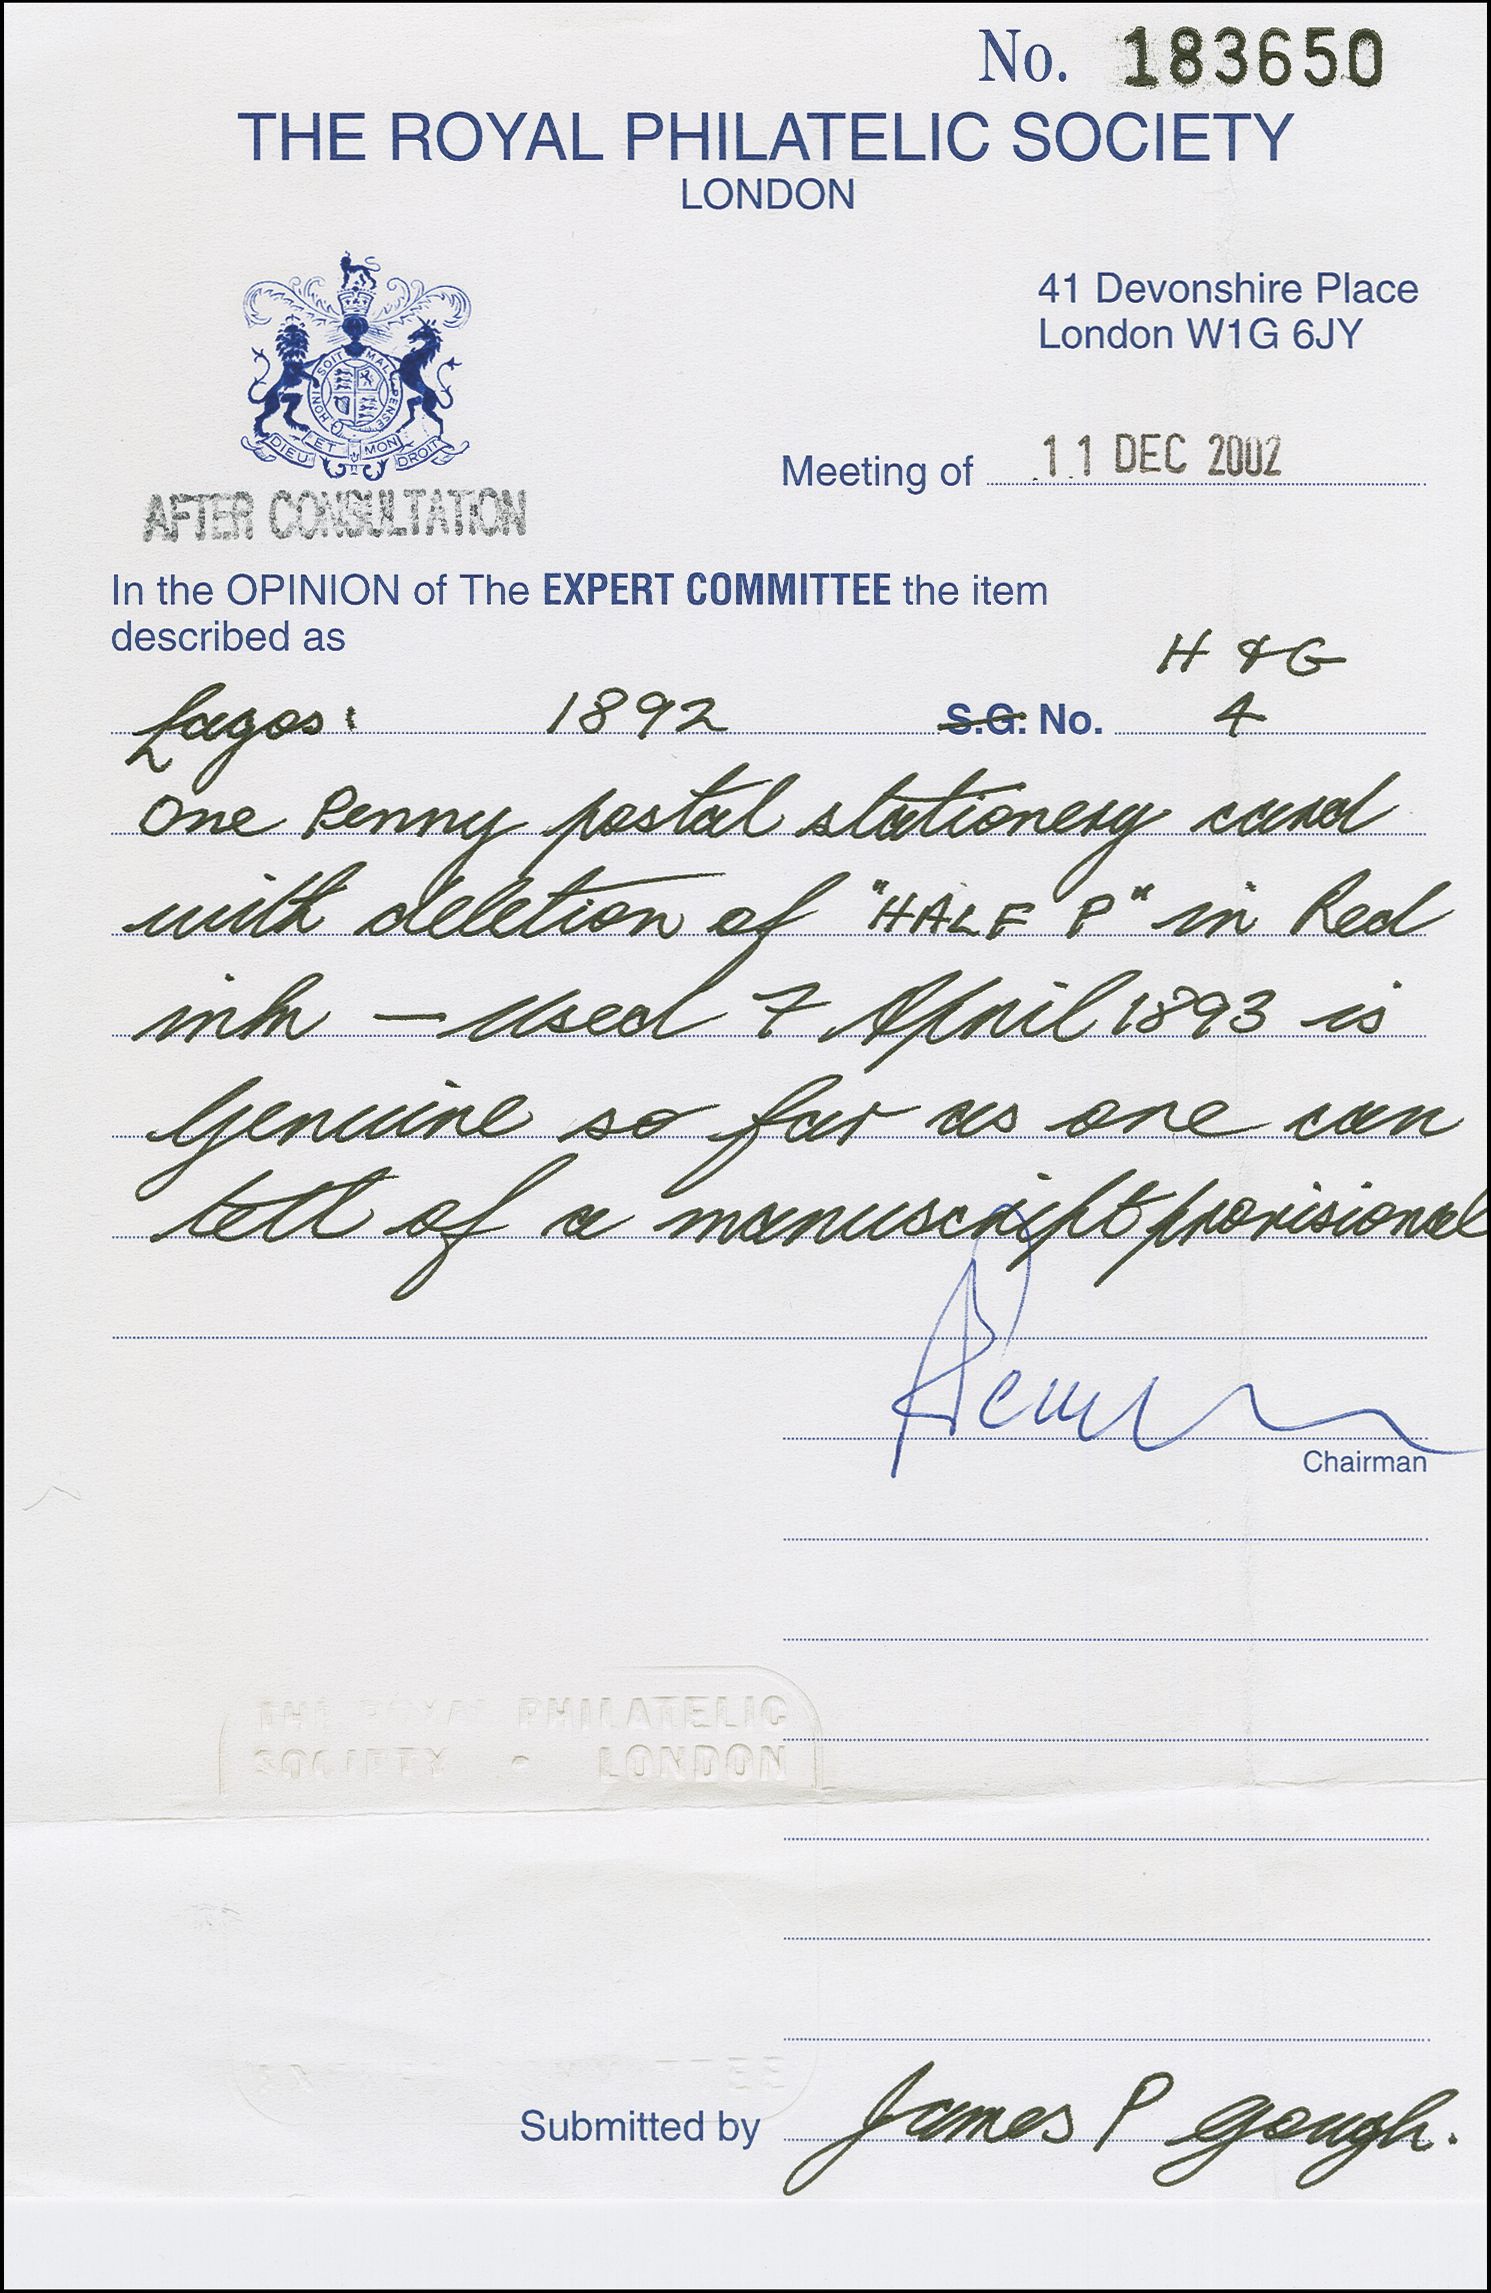 No. 183650
THE ROYAL PHILATELIC SOCIETY
LONDON
41 Devonshire Place
London W1G 6JY
HONI SOIT MAL PENSE
DIEU ET MON DROIT
Meeting of 11 DEC 2002
AFTER CONSULTATION
In the OPINION of The EXPERT COMMITTEE the item
described as
H & G
Lagos: 1892 S.G. No. 4
One Penny postal stationery card
with deletion of "HALF P" in Red
ink — Used 7 April 1893 is
genuine so far as one can
tell of a manuscript provisional
Chairman
THE ROYAL PHILATELIC
SOCIETY • LONDON
Submitted by James P Gough.